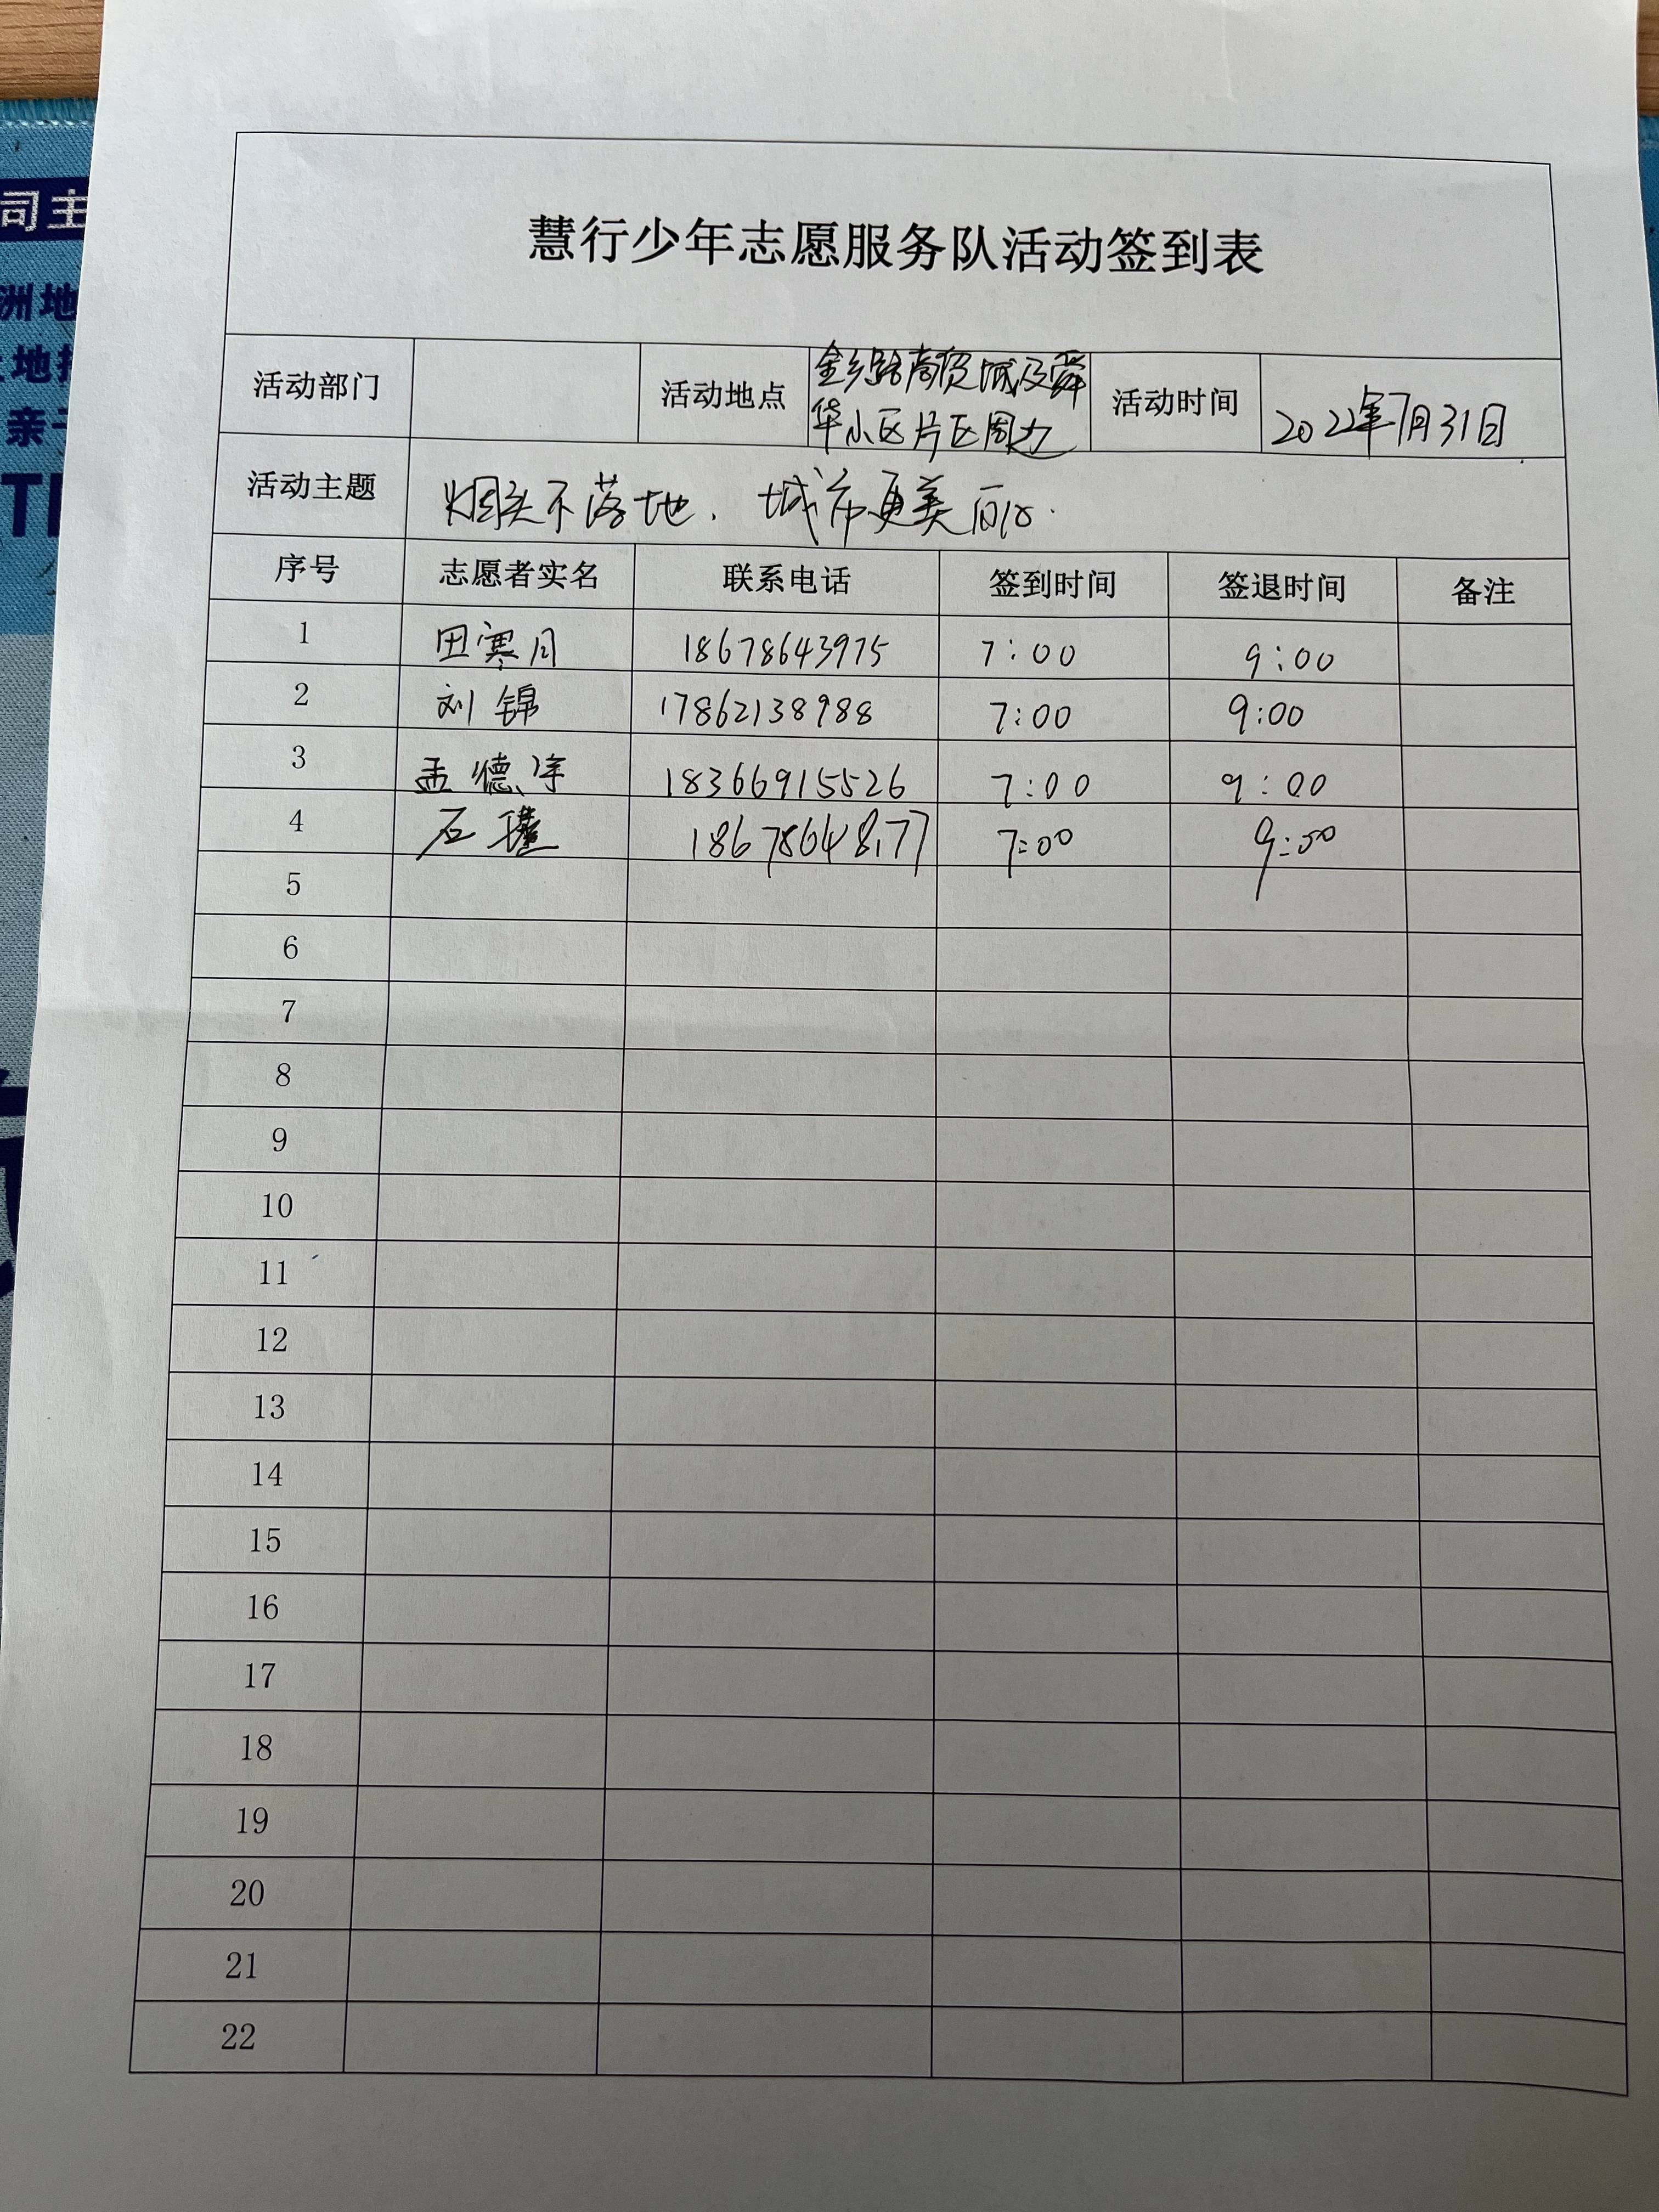 司主
洲地
慧行少年志愿服务队活动签到表
活动部门 活动地点 金乡路商贸城及舜华小区片区周边 活动时间 2022年7月31日
活动主题 烟头不落地、城市更美丽.
序号 志愿者实名 联系电话 签到时间 签退时间 备注
1 田寒月 18678643975 7:00 9:00
2 刘锦 17862138988 7:00 9:00
3 孟德洋 18366915526 7:00 9:00
4 石瑾 18678648177 7:00 9:00
5
6
7
8
9
10
11
12
13
14
15
16
17
18
19
20
21
22